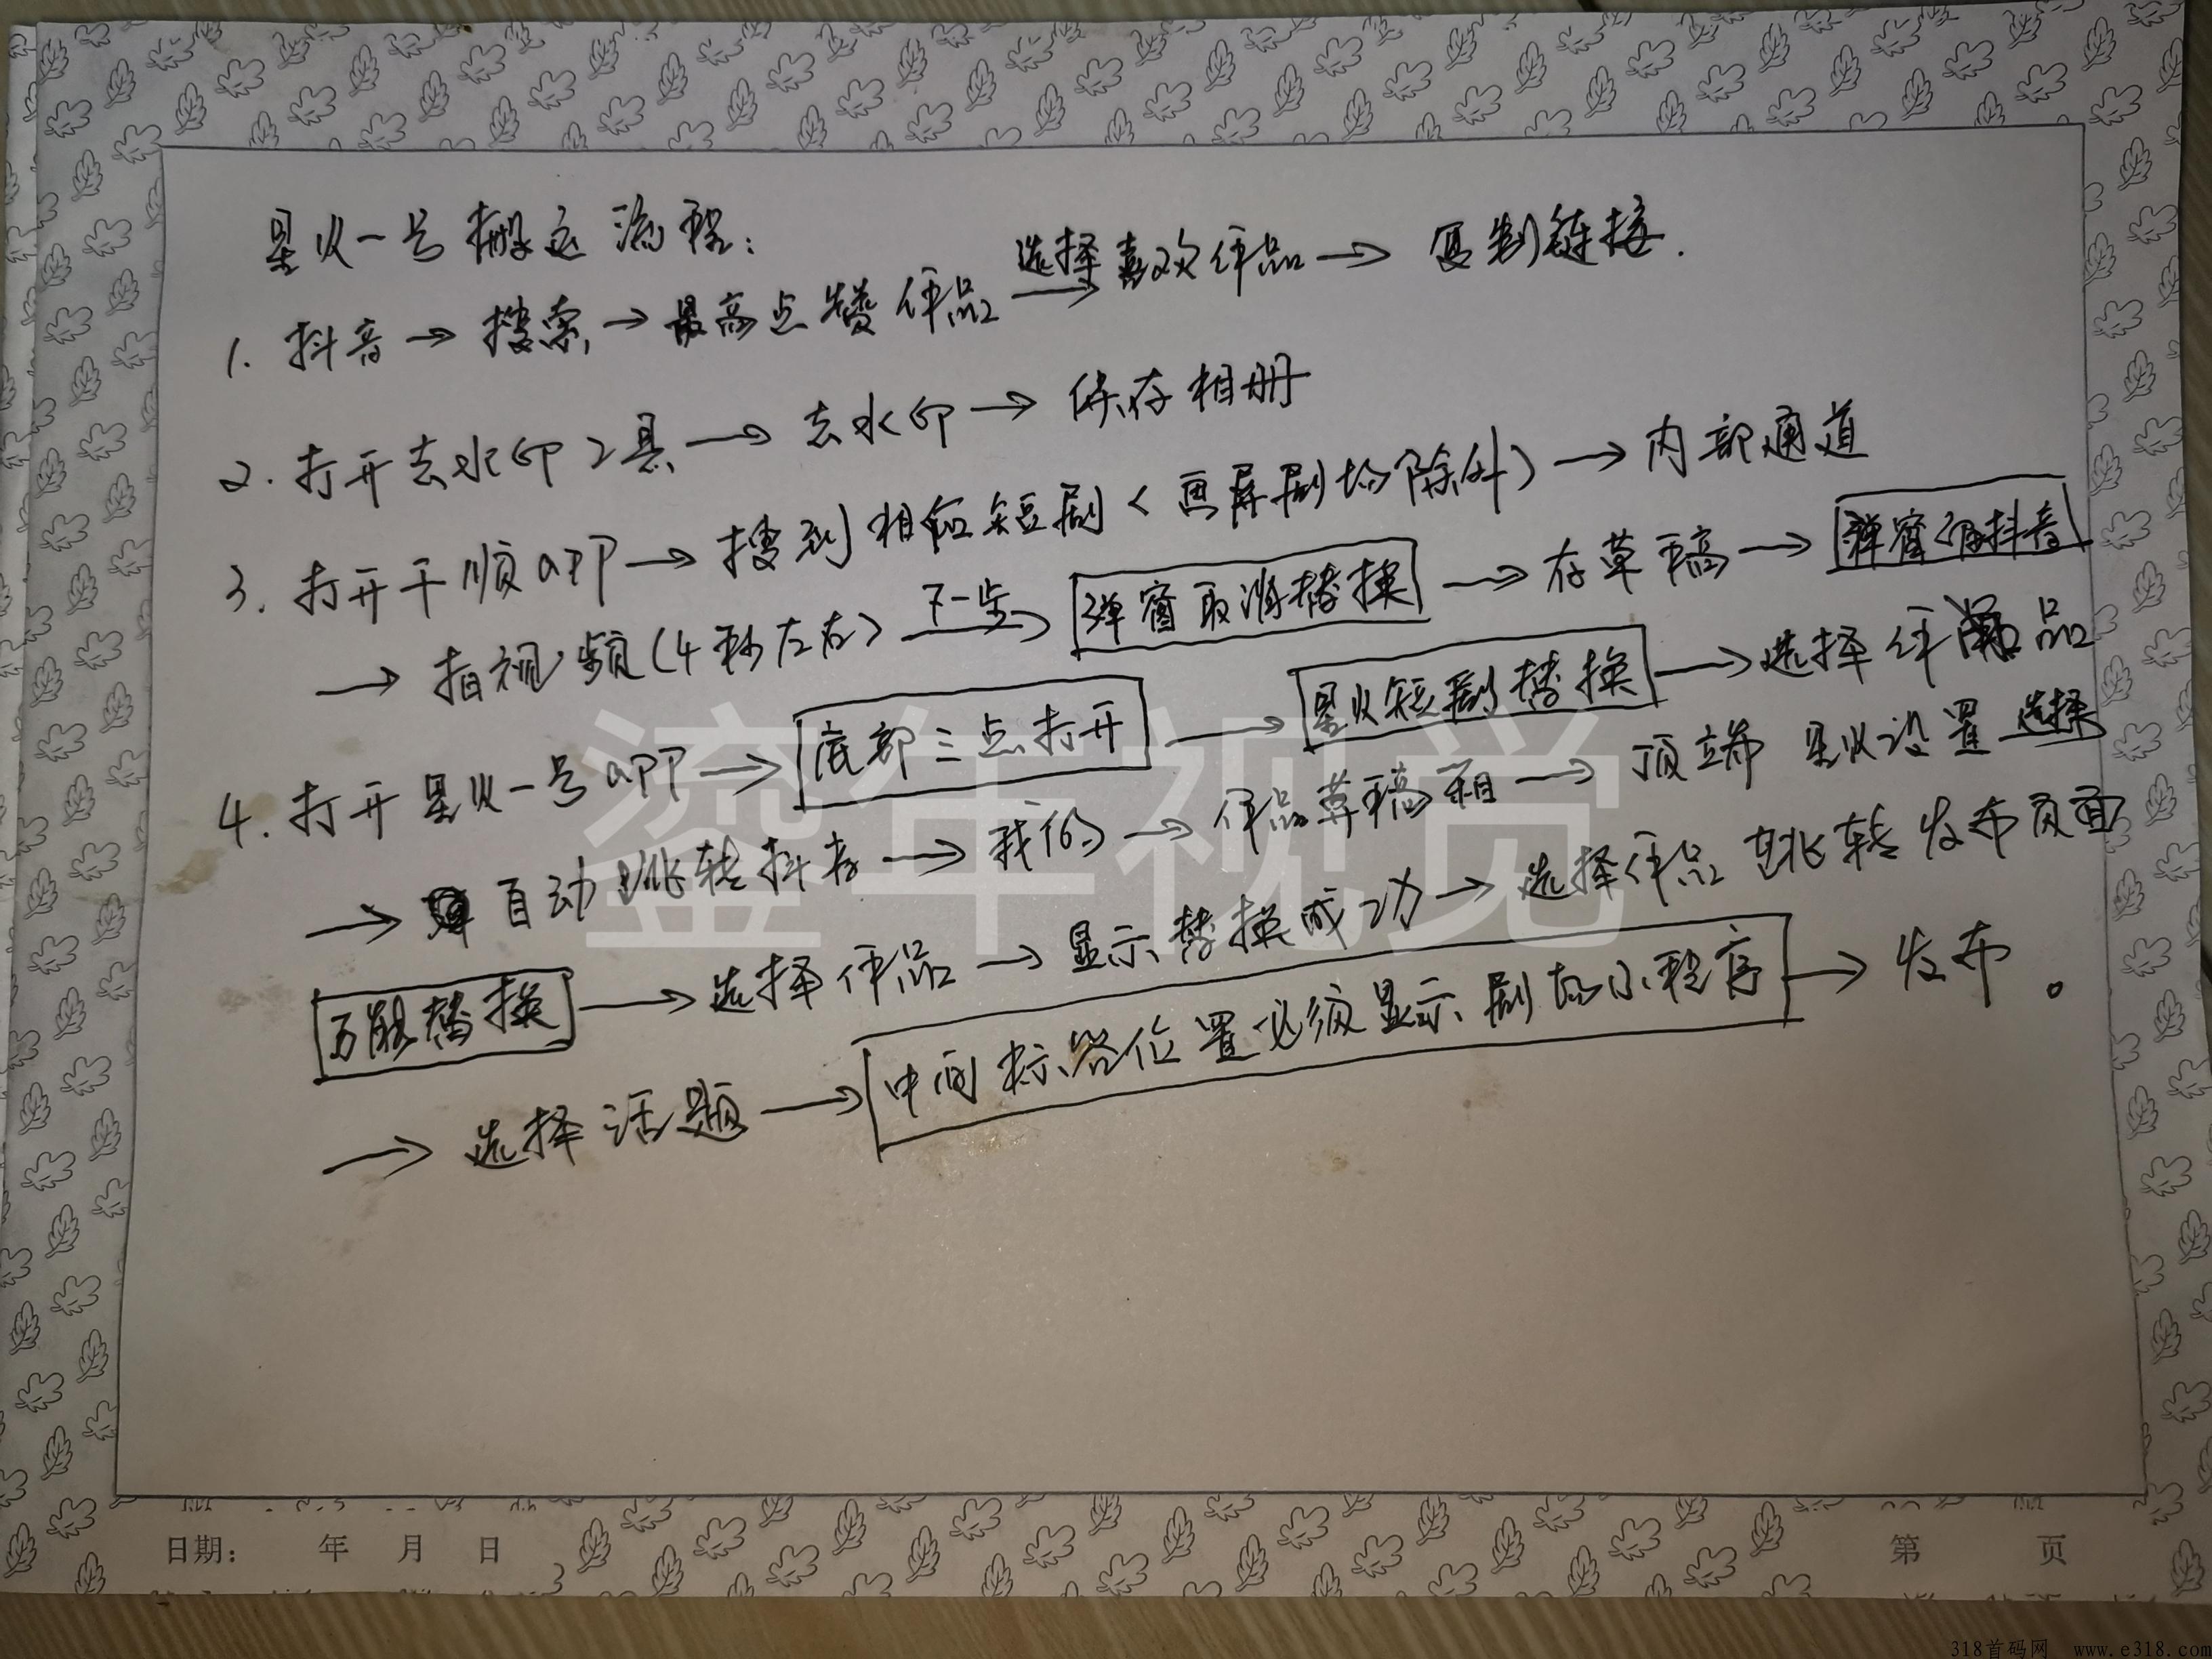 星火一号搬运流程：
1. 抖音→搜索→最高点赞作品 选择喜欢作品→ 复制链接.
2. 打开去水印工具→去水印→保存相册
3. 打开千顺app→搜到相应短剧（画屏剧场除外）→内部通道
→拍视频（4秒左右）下一步→ 弹窗取消替换→存草稿→弹窗 抖音
4. 打开星火一号app→底部三点打开→星火短剧替换→选择作品
→自动跳转抖音→我的→作品草稿箱→顶端 星火设置 选择
万能替换→选择作品→显示替换成功→选择作品 跳转发布页面
→选择话题→中间标签位置必须显示剧场小程序→发布。
鎏年视觉
日期： 年 月 日 第 页
318首码网 www.e318.com